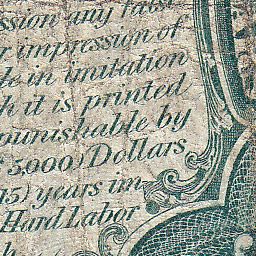 ssion any false
r impression of
de in imitation
h it is printed
punishable by
5,000) Dollars
15) years im
Hard Labor